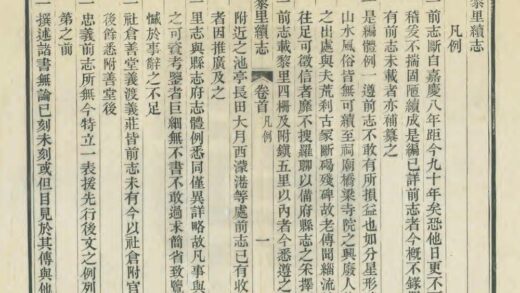 黎里續志
凡例
一前志斷自嘉慶八年距今九十年矣恐他日更不
稽爰不揣固陋續成是編已詳前志者今概不錄
有前志未載者亦補纂之
一是編體例一遵前志不敢有所損益也如分星形
山水風俗皆無可續至祠廟橋梁寺院之興廢人
之出處與夫荒刹古冢斷碣殘碑故老傳聞緇流
往足可徵信者靡不搜羅聊以備府縣志之釆擇
一前志載黎里四柵及附鎮五里以內者今悉遵之
黎里續志 卷首 凡例 一
附近之池亭長田大月西濛港等處前志已有收
者因推廣及之
一里志與縣志府志體例悉同僅異詳略故凡事與
之可資考鑒者巨細無不書不敢過求簡省致覽
憾於事辭之不足
一社倉善堂義渡義莊皆前志未有今以社倉附官
後餘悉附善堂後
一忠義前志所無今特立一表援先行後文之例列
第之前
一撰述諸書無論已刻未刻或但目見於其傳與他